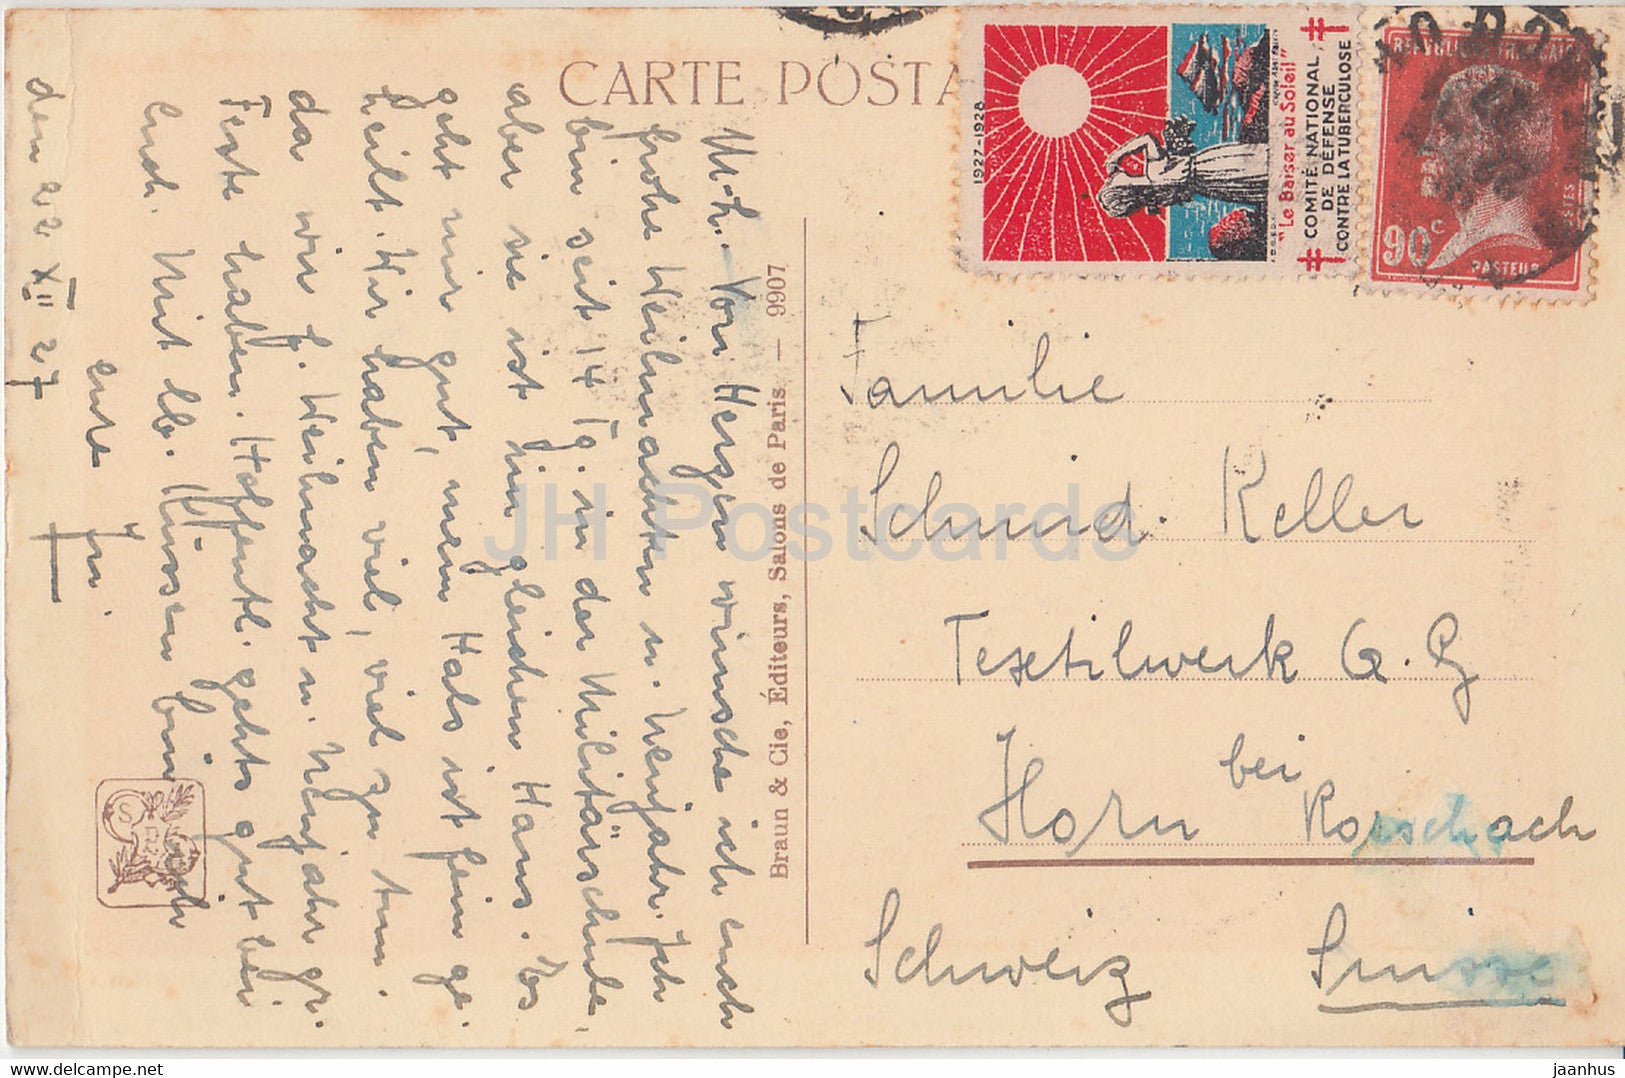 CARTE POSTA
1927-1928
"Le Baiser au Soleil"
COMITÉ NATIONAL
DE DÉFENSE
CONTRE LA TUBERCULOSE
90c
PASTEUR
den 22 XII 27
M. L. Von Herzen wünsche ich euch
frohe Weihnachten u. Neujahr. Ich
bin seit 14 Tg. in der Militärschule,
aber sie ist im gleichen Haus. Es
geht mir gut, mein Hals ist fein ge-
heilt. Wir haben viel, viel zu tun.
da wir h. Weihnacht u. Neujahr gr.
Feste haben. Hoffentl. gehts gut bei
Euch. Mit lb. Küssen bin ich
eure
Braun & Cie, Éditeurs, Salons de Paris — 9907
Familie
Schmid-Keller
Textilwerk A. G
Horn bei Rorschach
Schweiz Suisse
JH Postcards
delcampe.net
jaanhus